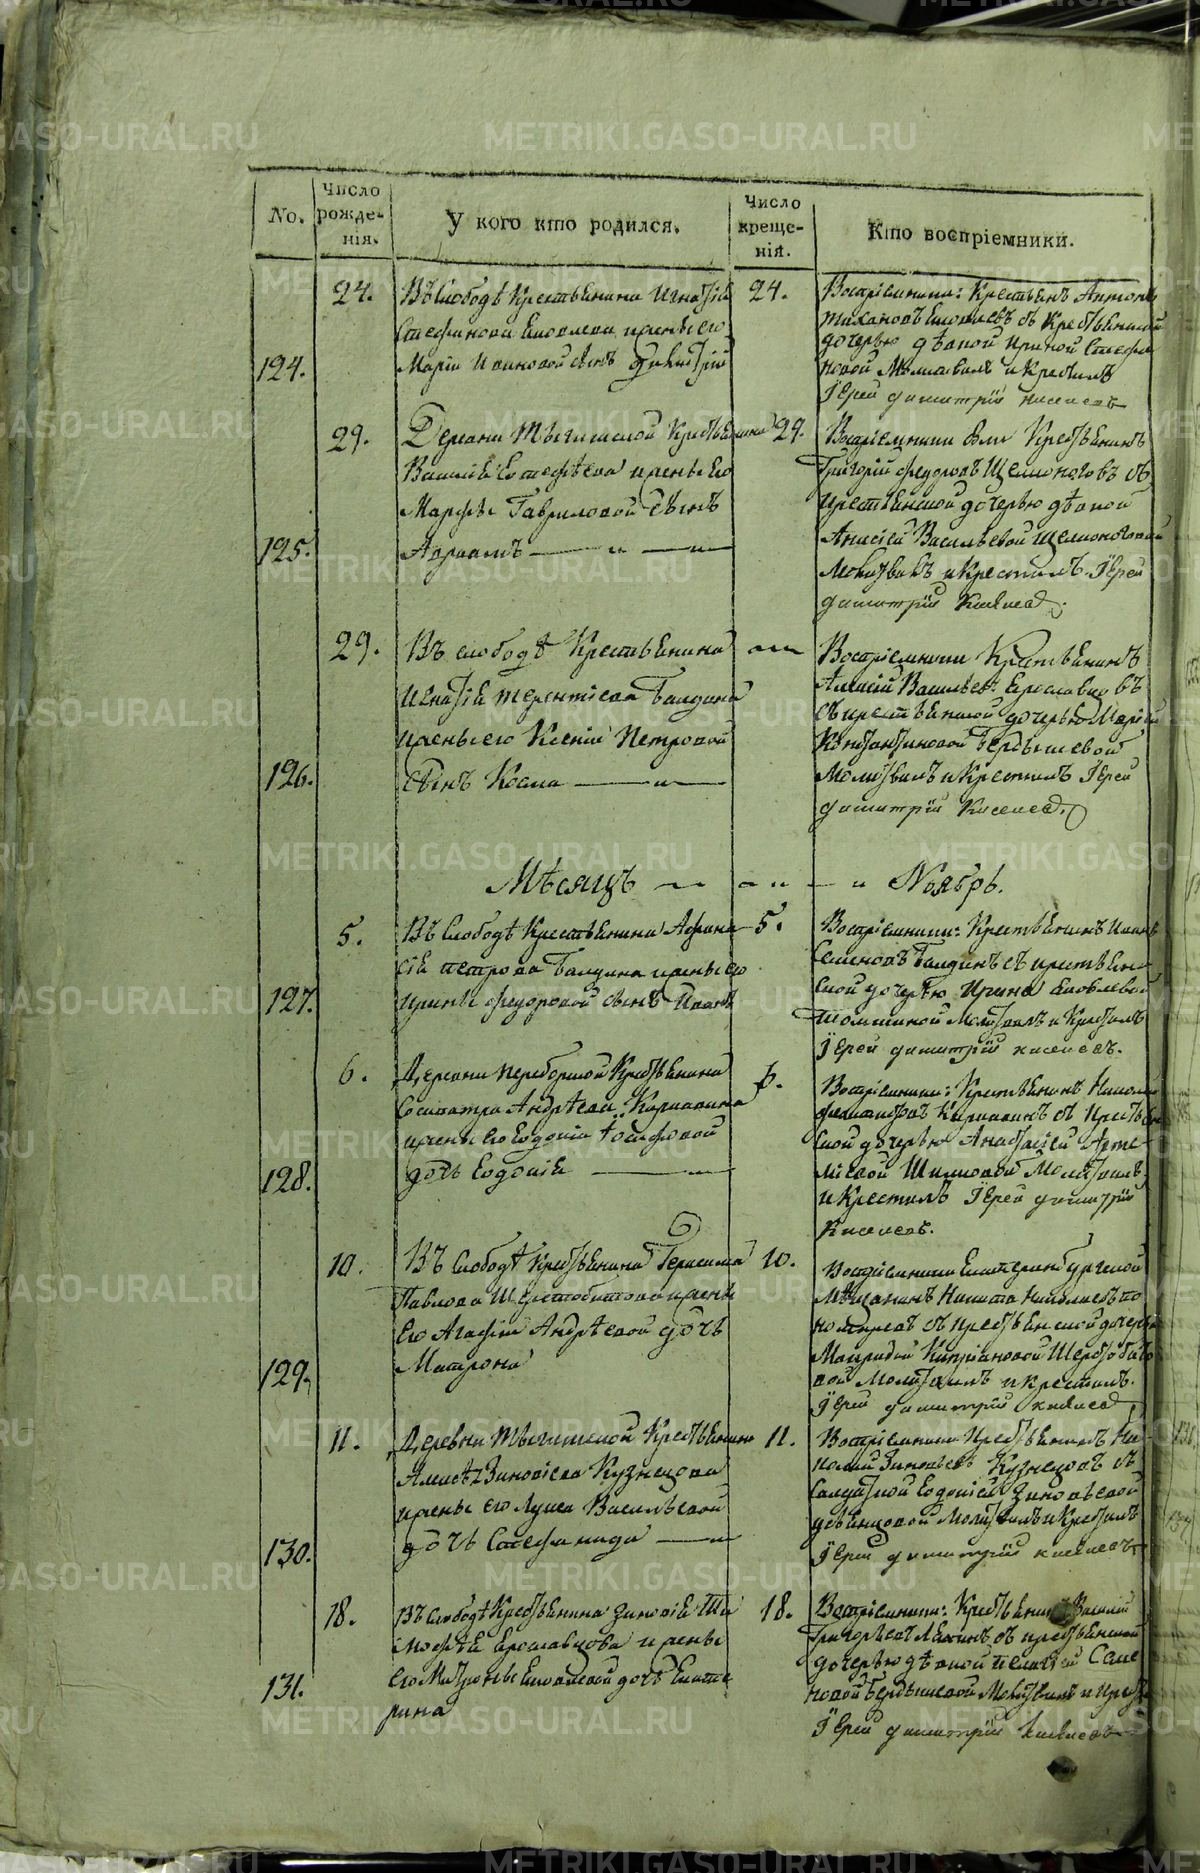 No.
Число рожде-нія.
У кого кто родился.
Число креще-нія.
Кто воспріемники.
124.
24.
Въ Слободѣ Крестьянина Игнатія
Стефанова Яковлева жены его
Маріи Ивановой сынъ Димитрій
24.
Воспріемники: Крестьян Антонъ
дочерью дѣвкой Ириной Стефа
новой Молитвилъ и Крестилъ
Іерей Димитрій Киселевъ
125.
29.
Деревни Крестьянина
Василія Евстафѣева жены Его
Марфы Гавриловой сынъ
Авраамъ
29.
Воспріемники были Крестьянинъ
Григорій Федоровъ Щелконоговъ съ
крестьянской дочерью дѣвкой
Анисіей Васильевой Щелконоговой
Молитвилъ и Крестилъ Іерей
Димитрій Киселевъ.
126.
29.
Въ слободѣ Крестьянина
Игнатія Терентіева Балдина
жены его Ксеніи Петровой
сынъ Косма
Воспріемники Крестьянинъ
Алексій Васильевъ Ерославцовъ
съ крестьянской дочерью Маріей
Константиновой Бердышевой
Молитвилъ и Крестилъ Іерей
Димитрій Киселевъ.
Мѣсяцъ Ноябрь.
127.
5.
Въ Слободѣ Крестьянина Афана
сія Петрова Балдина жены его
Ирины Федоровой сынъ Іоаннъ
5.
Воспріемники: Крестьянинъ Иванъ
Семеновъ Балдинъ съ крестьян
ской дочерью Ирина Яковлевой
Молитвилъ и Крестилъ
Іерей Димитрій Киселевъ.
128.
6.
Деревни Переборной Крестьянина
Сосипатра Андрѣева
жены его Евдокіи Іосифовой
дочь Евдокія
6.
Воспріемники: Крестьянинъ Николай
съ Кресть
ской дочерью Анастасіей
Молитвилъ
и Крестилъ Іерей Димитрій
Киселевъ.
129.
10.
Въ Слободѣ Крестьянина Герасима
Павлова Шерстобитова жены
Его Агафіи Андрѣевой дочь
Матрона
10.
Воспріемники Екатеринбургской
Мѣщанинъ Никита Николаевъ По
номаревъ съ крестьянской дочерью
Маѵридой Кипріановой Шерстобито
вой Молитвилъ и крестилъ.
Іерей Димитрій Киселевъ
130.
11.
Деревни Крестьянина
Алексѣя Зиновіева Кузнецова
жены его Лукіи Васильевой
дочь Стефанида
11.
Воспріемники Крестьянинъ Ни
колай Зиновьевъ Кузнецовъ съ
Солдаткой Евдокіей Зиновьевой
Молитвилъ и Крестилъ
Іерей Димитрій Киселевъ
131.
18.
Въ Слободѣ Крестьянина Зиновія Ти
мофѣя Ерославцова жены
его Матроны Яковлевой дочь Екате
рина
18.
Воспріемники: Крестьянинъ Василій
Григорьевъ съ крестьянской
дочерью дѣвкой Пелагіей Семе
новой Бердышевой Молитвилъ и крест
Іерей Димитрій Киселевъ
METRIKI.GASO-URAL.RU